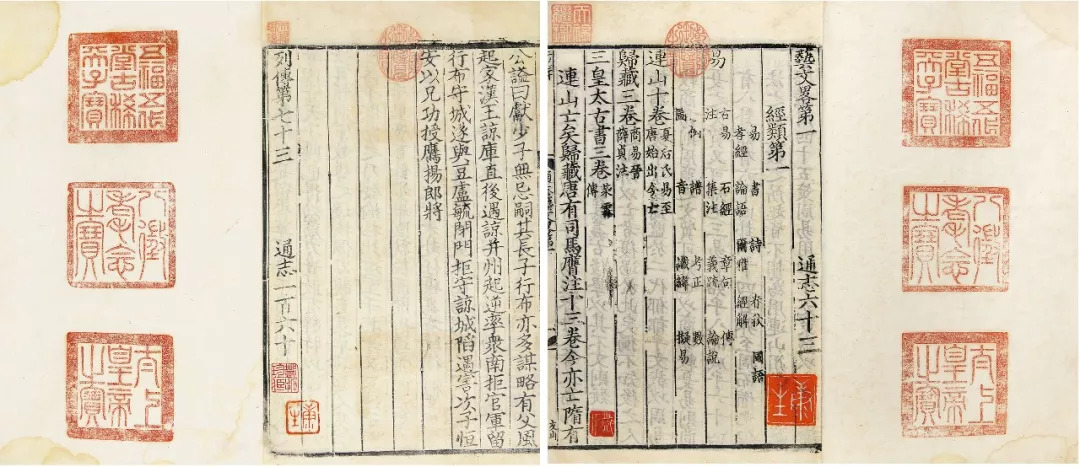 五福五代堂古稀天子寶
八徵耄念之寶
太上皇帝之寶
藝文畧第一 通志六十三
經類第一
易 書 詩 春秋 國語
孝經 論語 爾雅 經解
易
古易 石經 章句 傳
注 集注 義疏 論說
例 譜 考正 數
圖 音 讖緯 擬易
連山十卷 夏后氏易至唐始出今亡
歸藏三卷 商易晉薛貞注
三皇太古書三卷 傳
連山亡矣歸藏唐有司馬膺注十三卷今亦亡隋有
公謚曰獻少子無忌嗣其長子行布亦多謀略有父風
起家漢王諒庫直後遇諒并州起逆率衆南拒官軍留
行布守城遂與豆盧毓閉門拒守諒城陷遇害次子恒
安以兄功授鷹揚郎將
列傳第七十三 通志一百六十
五福五代堂古稀天子寶
八徵耄念之寶
太上皇帝之寶